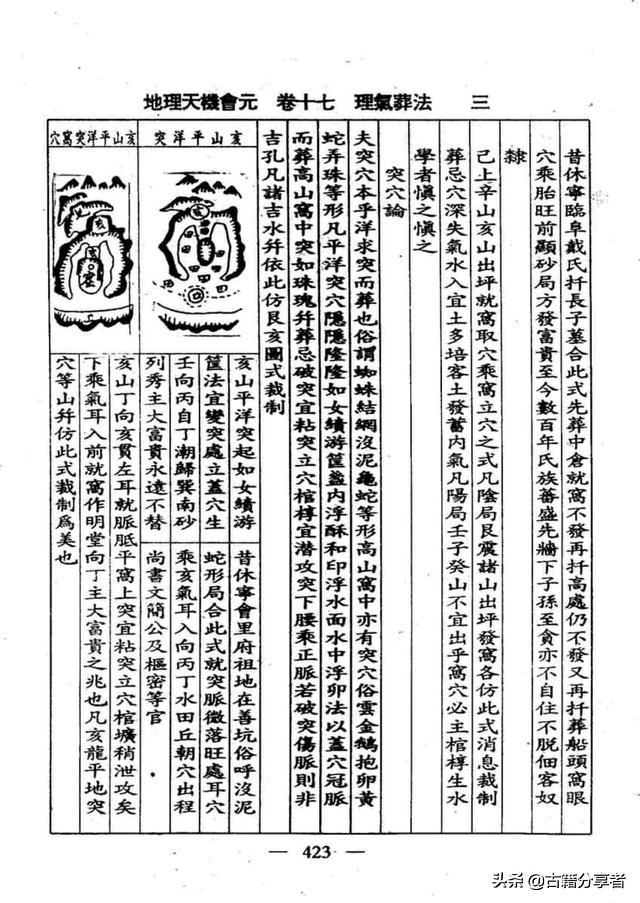 地理天機會元　卷十七　理氣葬法　三
昔休寧臨阜戴氏扦長子墓合此式先葬中倉就窩不發再扦高處仍不發又再扦葬船頭窩眼
穴乘胎旺前顯砂局方發富貴至今數百年氏族蕃盛先嫡下子孫至貪亦不自住不脫佃客奴
隸
己上辛山亥山出坪就窩取穴乘窩立穴之式凡陰局艮震諸山出坪發窩各仿此式消息裁制
葬忌穴深失氣水入宜土多培客土發蓄内氣凡陽局壬子癸山不宜出乎窩穴必主棺椁生水
學者慎之慎之
突穴論
夫突穴本乎洋求突而葬也俗謂蜘蛛結網沒泥龜蛇等形高山窩中亦有突穴俗雲金鵝抱卵黃
蛇弄珠等形凡平洋突穴隱隱隆隆如女績游筐盪内浮酥和印浮水面水中浮卵法以蓋穴冠脈
而葬高山窩中突如珠瑰幷葬忌破突宜粘突立穴棺椁宜潜攻突下腰乘正脈若破突傷脈則非
吉孔凡諸吉水幷依此仿艮亥圖式裁制
亥山平洋突
亥山平洋突起如女績游
筐法宜變突處立蓋穴生
壬向丙自丁潮歸巽南砂
列秀主大富貴永遠不替
昔休寧會里府祖地在善坑俗呼沒泥
蛇形局合此式就突脈微落旺處耳穴
乘亥氣耳入向丙丁水田丘朝穴出程
尚書文簡公及樞密等官
亥山平洋突窩穴
亥山丁向亥貫左耳就脈胝平窩上突宜粘突立穴棺壙稍泄攻矣
下乘氣耳入前就窩作明堂向丁主大富貴之兆也凡亥龍平地突
穴等山幷仿此式裁制爲美也
— 423 —
头条 @古籍分享者